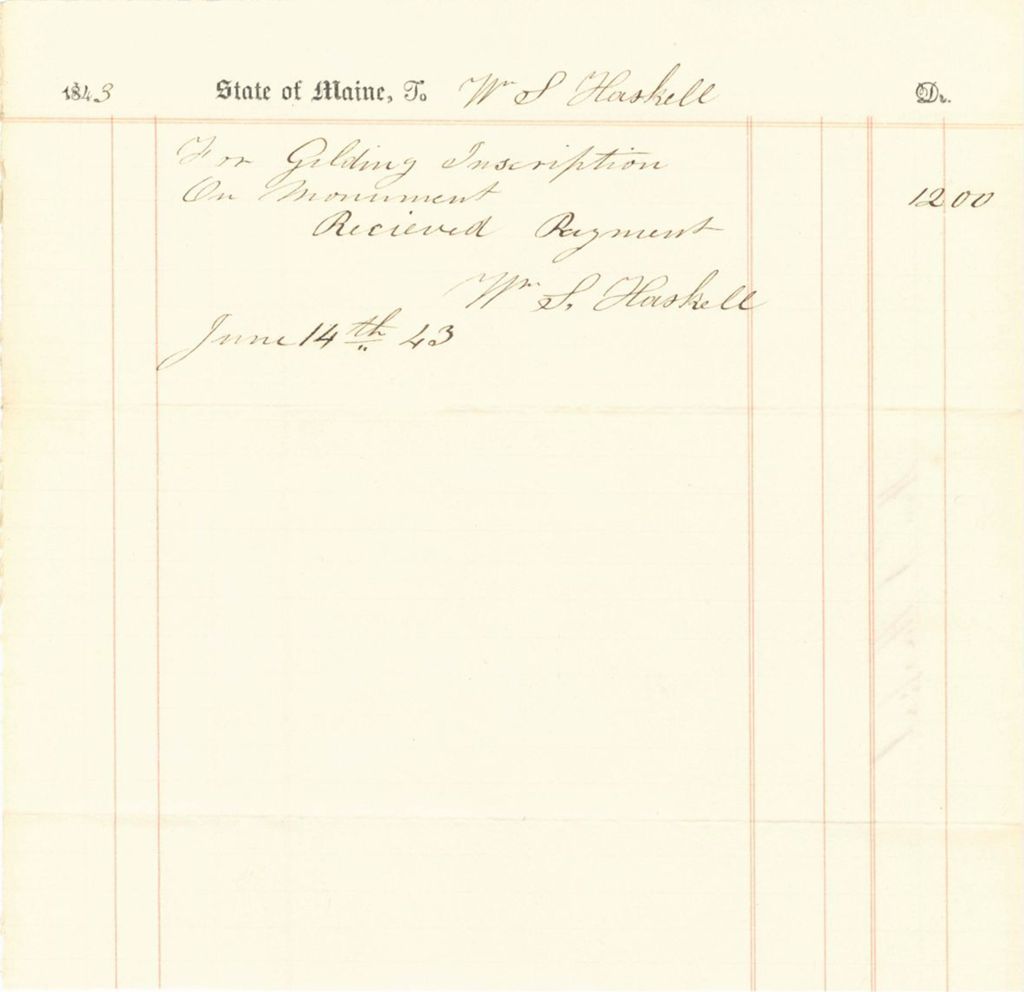 1843 State of Maine, To Wm S Haskell Dr.
For Gilding Inscription
On Monument 12 00
Recieved Payment
Wm S. Haskell
June 14th 43